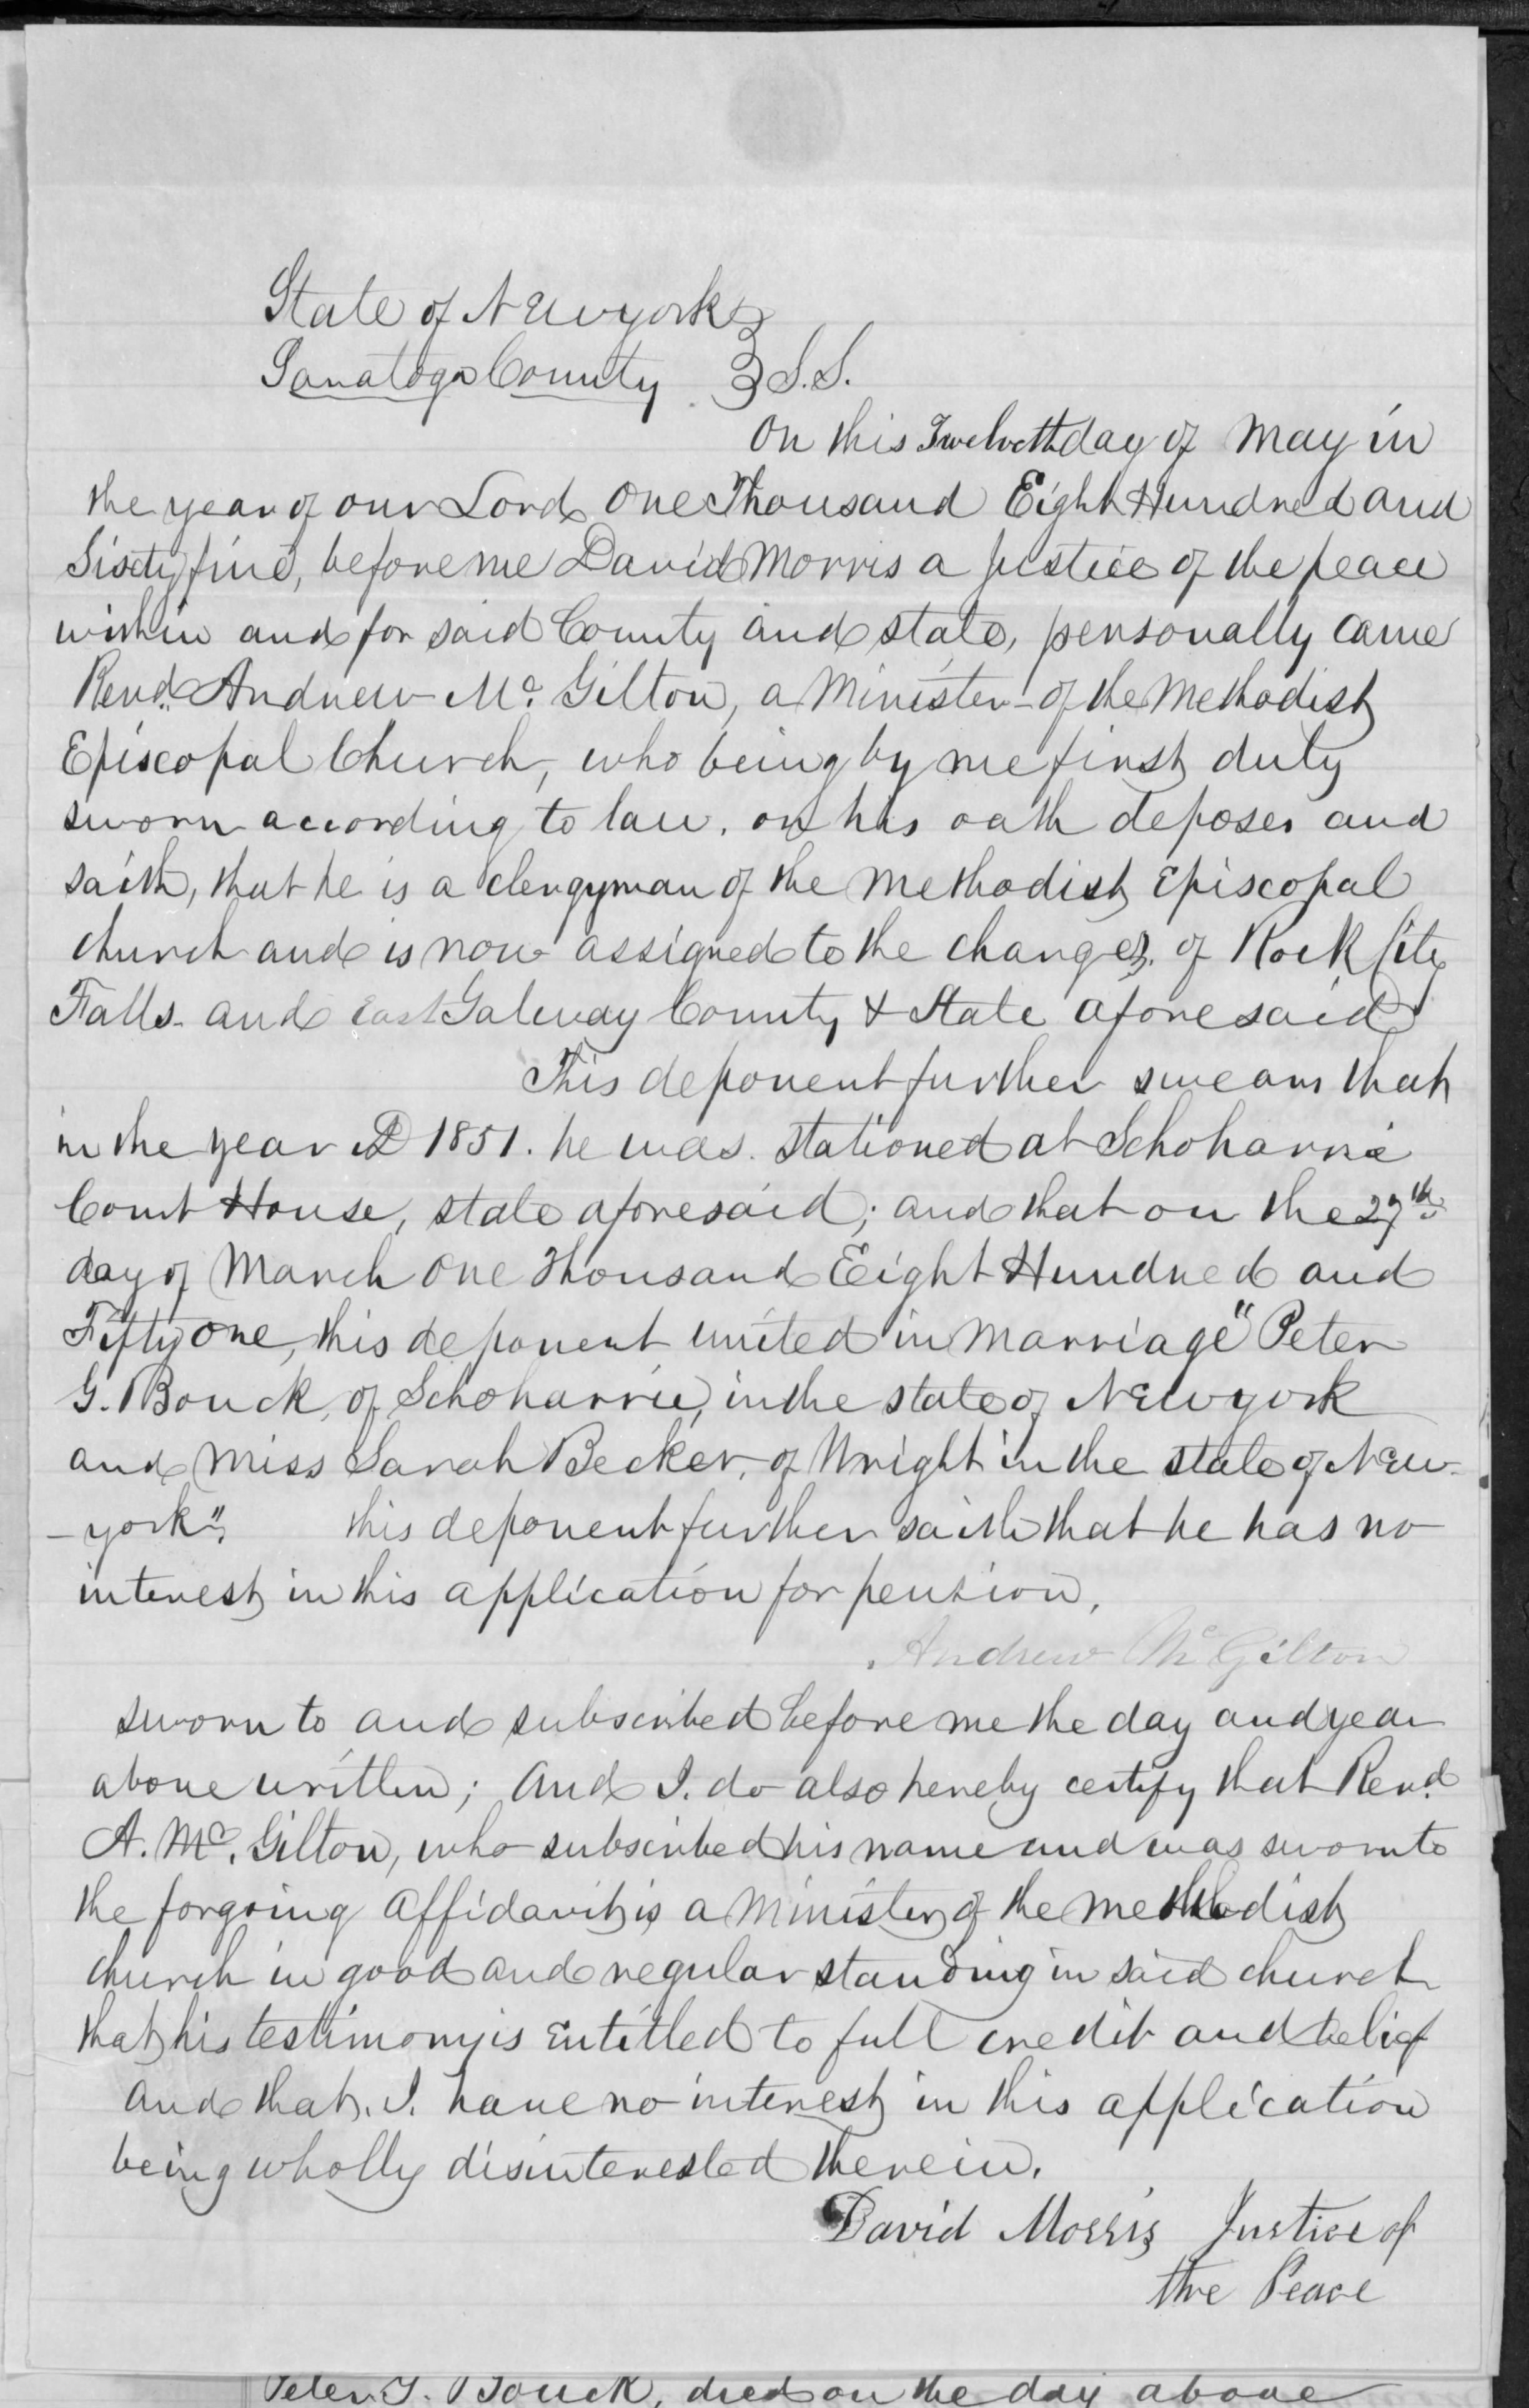 State of Newyork }
Saratoga County } S.S.
On this Twelveth day of May in
the year of our Lord One Thousand Eight Hundred and
Sixty five, before me David Morris a justice of the peace
within and for said County and state, personally came
Revd. Andrew Mc. Gilton, a Minister of the Methodist
Episcopal Church, who being by me first duly
sworn according to law, on his oath deposes and
saith, that he is a clergyman of the Methodist Episcopal
church and is now assigned to the charges of Rock City
Falls and East Galway County & State aforesaid
This deponent further swears that
in the year AD 1851. he was stationed at Schoharrie
Court House, state aforesaid; and that on the 27th
day of March One Thousand Eight Hundred and
Fifty one, this deponent united in marriage "Peter
G. Bouck, of Schoharrie, in the state of Newyork
and Miss Sarah Becker, of Wright in the state of New-
-york", this deponent further saith that he has no
interest in this application for pension,
Andrew Mc Gilton
sworn to and subscribed before me the day and year
above written; and I. do also hereby certify that Revd.
A. Mc. Gilton, who subscribed his name and was sworn to
the forgoing affidavit, is a Minister of the methodist
church in good and regular standing in said church
that his testimony is entitled to full credit and belief
and that. I. have no interest in this application
being wholly disinterested therein.
David Morris Justice of
the Peace
Peter G. Bouck, died on the day above